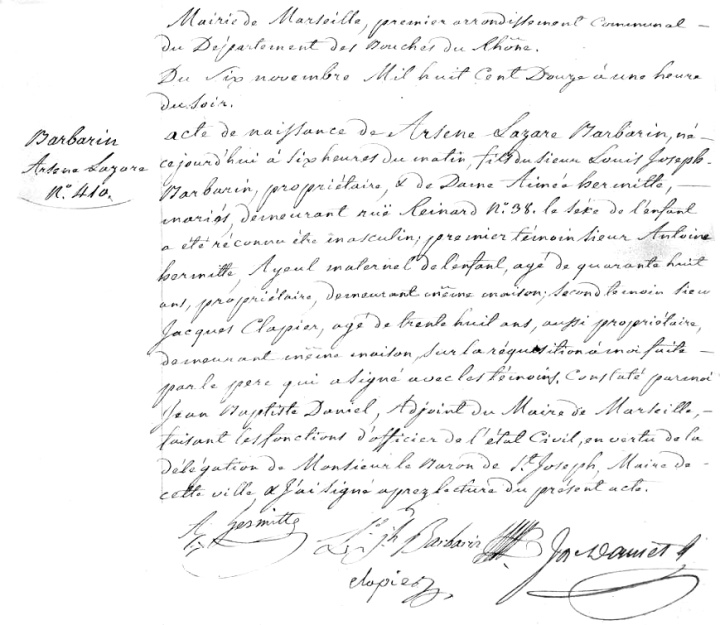 Mairie de Marseille, premier arrondissement Communal -
du Département des Bouches du Rhône.
Du Six novembre Mil huit Cent Douze à une heure
du soir.
Barbarin
Arsene Lazare
N.° 410.
acte de naissance de Arsene Lazare Barbarin, né -
cejourd'hui à six heures du matin, fils du sieur Louis Joseph -
Barbarin, propriétaire, & de Dame Aimée hermitte, -
mariés, demeurant ruë Reinard N.° 38. le séxe de l'enfant
a été réconnu être masculin; premier témoin sieur Antoine
hermitte, Ayeul maternel de l'enfant, agé de quarante huit
ans, propriétaire, demeurant même maison; second témoin sieur
Jacques Clapier, agé de trente huit ans, aussi propriétaire,
demeurant même maison, sur la réquisition à moi faite -
par le pere qui a signé avec les témoins. Constaté par moi
Jean Baptiste Daniel, Adjoint du Maire de Marseille, -
faisant les fonctions d'officier de l'état Civil, en vertu de la
délégation de Monsieur le Baron de St. Joseph, Maire de -
cette ville, & J'ai signé aprez lecture du présent acte.
A hermitte Barbarin Daniel
clapier